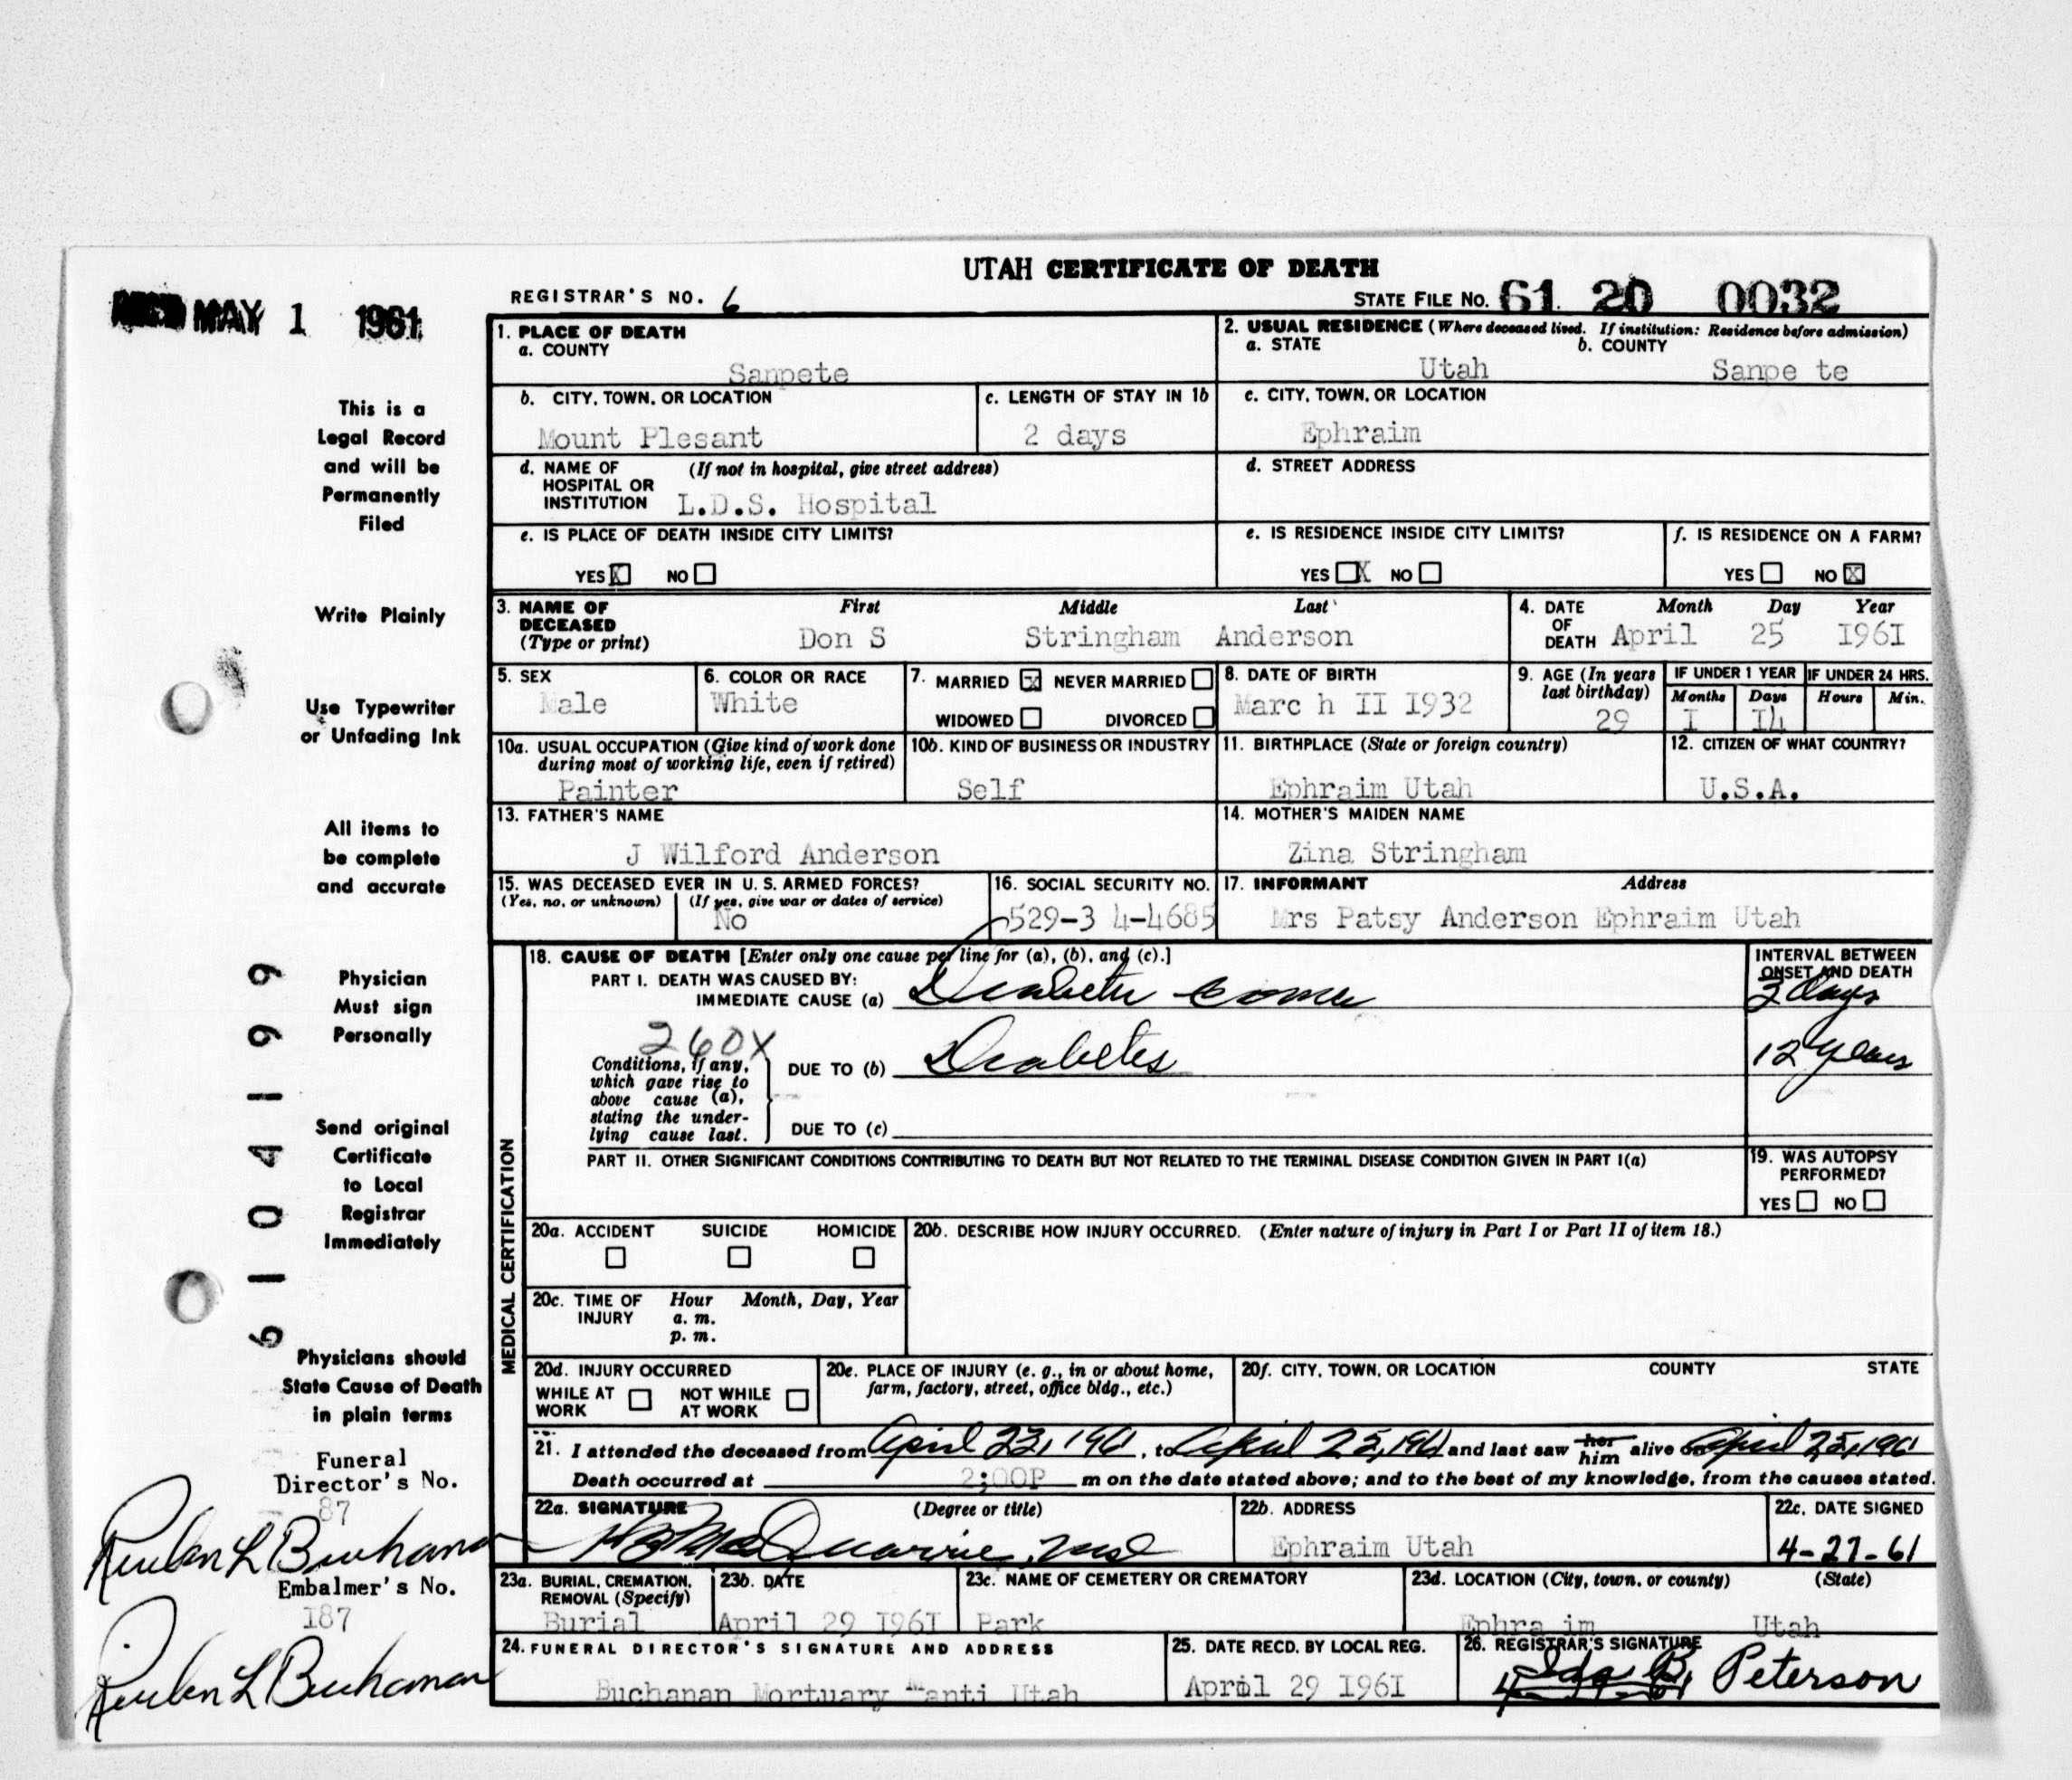 UTAH CERTIFICATE OF DEATH
MAY 1 1961
REGISTRAR'S NO. 6
STATE FILE NO. 61 20 0032
1. PLACE OF DEATH
a. COUNTY
Sanpete
2. USUAL RESIDENCE (Where deceased lived. If institution: Residence before admission)
a. STATE b. COUNTY
Utah Sanpe te
b. CITY, TOWN, OR LOCATION
Mount Plesant
c. LENGTH OF STAY IN 1b
2 days
c. CITY, TOWN, OR LOCATION
Ephraim
d. NAME OF (If not in hospital, give street address)
HOSPITAL OR
INSTITUTION L.D.S. Hospital
d. STREET ADDRESS
e. IS PLACE OF DEATH INSIDE CITY LIMITS?
YES X NO
e. IS RESIDENCE INSIDE CITY LIMITS?
YES X NO
f. IS RESIDENCE ON A FARM?
YES NO X
3. NAME OF DECEASED (Type or print)
First Middle Last
Don S Stringham Anderson
4. DATE OF DEATH
Month Day Year
April 25 I96I
5. SEX
Male
6. COLOR OR RACE
White
7. MARRIED X NEVER MARRIED
WIDOWED DIVORCED
8. DATE OF BIRTH
Marc h II I932
9. AGE (In years last birthday)
29
IF UNDER 1 YEAR
Months Days
I I4
IF UNDER 24 HRS.
Hours Min.
10a. USUAL OCCUPATION (Give kind of work done during most of working life, even if retired)
Painter
10b. KIND OF BUSINESS OR INDUSTRY
Self
11. BIRTHPLACE (State or foreign country)
Ephraim Utah
12. CITIZEN OF WHAT COUNTRY?
U.S.A.
13. FATHER'S NAME
J Wilford Anderson
14. MOTHER'S MAIDEN NAME
Zina Stringham
15. WAS DECEASED EVER IN U. S. ARMED FORCES?
(Yes, no, or unknown) (If yes, give war or dates of service)
No
16. SOCIAL SECURITY NO.
529-3 4-4685
17. INFORMANT Address
Mrs Patsy Anderson Ephraim Utah
MEDICAL CERTIFICATION
18. CAUSE OF DEATH [Enter only one cause per line for (a), (b), and (c).]
PART I. DEATH WAS CAUSED BY:
IMMEDIATE CAUSE (a) Diabetic Coma
INTERVAL BETWEEN ONSET AND DEATH
days
260X
Conditions, if any, which gave rise to above cause (a), stating the underlying cause last.
DUE TO (b) Diabetes
12 years
DUE TO (c)
PART II. OTHER SIGNIFICANT CONDITIONS CONTRIBUTING TO DEATH BUT NOT RELATED TO THE TERMINAL DISEASE CONDITION GIVEN IN PART I(a)
19. WAS AUTOPSY PERFORMED?
YES NO
20a. ACCIDENT SUICIDE HOMICIDE
20b. DESCRIBE HOW INJURY OCCURRED. (Enter nature of injury in Part I or Part II of item 18.)
20c. TIME OF INJURY
Hour Month, Day, Year
a. m.
p. m.
20d. INJURY OCCURRED
WHILE AT WORK NOT WHILE AT WORK
20e. PLACE OF INJURY (e. g., in or about home, farm, factory, street, office bldg., etc.)
20f. CITY, TOWN, OR LOCATION COUNTY STATE
21. I attended the deceased from April 23, 1961, to April 25, 1961 and last saw her him alive on April 25, 1961
Death occurred at 2;00P m on the date stated above; and to the best of my knowledge, from the causes stated.
22a. SIGNATURE (Degree or title)
McQuarrie
22b. ADDRESS
Ephraim Utah
22c. DATE SIGNED
4-27-61
23a. BURIAL, CREMATION, REMOVAL (Specify)
Burial
23b. DATE
April 29 I96I
23c. NAME OF CEMETERY OR CREMATORY
Park
23d. LOCATION (City, town, or county) (State)
Ephra im Utah
24. FUNERAL DIRECTOR'S SIGNATURE AND ADDRESS
Buchanan Mortuary Manti Utah
25. DATE RECD. BY LOCAL REG.
April 29 I96I
26. REGISTRAR'S SIGNATURE
Ida B. Peterson
This is a
Legal Record
and will be
Permanently
Filed
Write Plainly
Use Typewriter
or Unfading Ink
All items to
be complete
and accurate
Physician
Must sign
Personally
Send original
Certificate
to Local
Registrar
Immediately
Physicians should
State Cause of Death
in plain terms
61 04199
Funeral
Director's No.
87
Reuben L Buchanan
Embalmer's No.
I87
Reuben L Buchanan